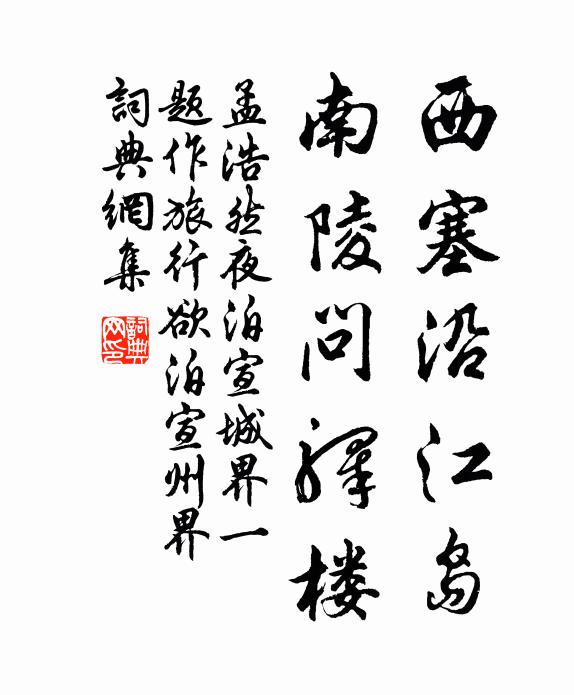 西塞沿江岛
南陵问驛楼
孟浩然夜泊宣城界一
题作旅行欲泊宣州界
詞典網集
詞典网印